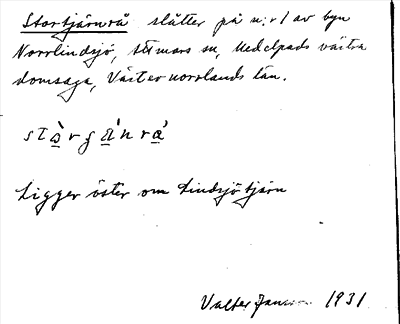 Stortjärnrå slåtter på n:r 1 av byn
Norrlindsjö, Stömars sn, Medelpads västra
domsaga, Västernorrlands län.
Ligger öster om Lindsjötjärn
Valter 1931